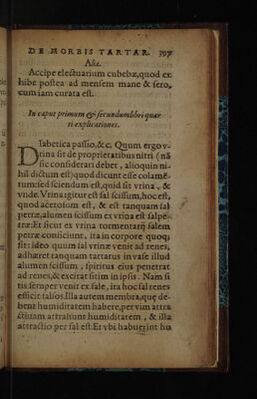 DE MORBIS TARTAR. 397
Aliꝰ.
Accipe electuarium cubebæ, quod ex
hibe postea ad mensem mane & sero,
cum iam curata est.
In caput primum & secundum libri quar
ti explicationes.
DIabetica passio, &c. Quum ergo v-
rina sit de proprietatibus nitri (nā
sic considerari debet, alioquin ni-
hil dictum est) quod dicunt esse colamē-
tum: sed sciendum est, quid sit vrina, &
vnde. Vrina igitur est sal scissum, hoc est,
quod acetosum est, & est tanquam sal
petræ, alumen scissum ex vrina est salpe-
træ: Et sicut ex vrina tormentarij salem
petræ conficiunt, ita in corpore quoq;
sit: ideo quum sal vrinæ venit ad renes,
adhæret tanquam tartarus in vase illud
alumen scissum, spiritus eius penetrat
ad renes, & excitat sitim in ipsis. Nam si
tis semper venit ex sale, ita hoc sal renes
efficit salsos. Illa autem membra, quę de-
bent humiditatem habere, per vim attra
ctiuam attrahunt humiditatem, & illa
attractio per sal est: Et vbi habuerint hu